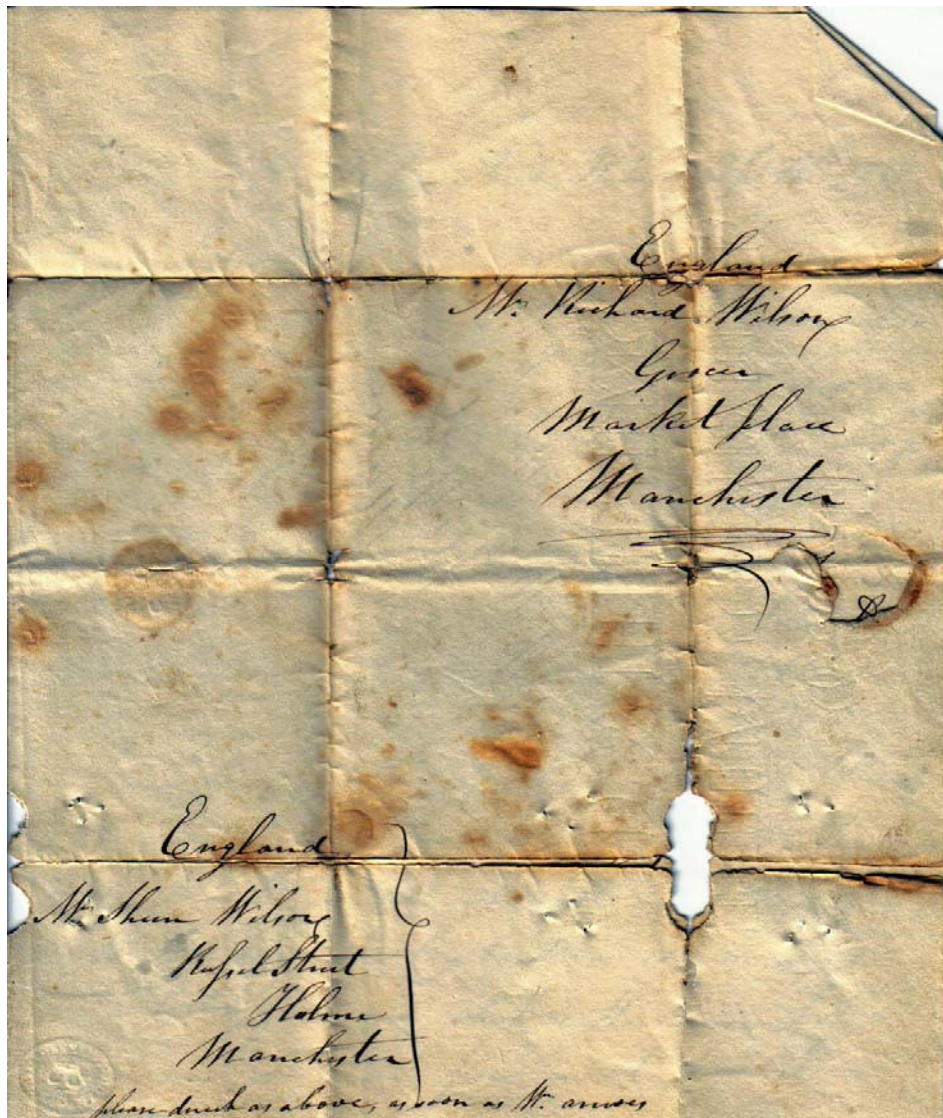 England
Mr. Richard Wilson
Grocer
Market place
Manchester
England
Mr. Wilson
Street
Holme
Manchester
please direct as above, as soon as Mr. arrives